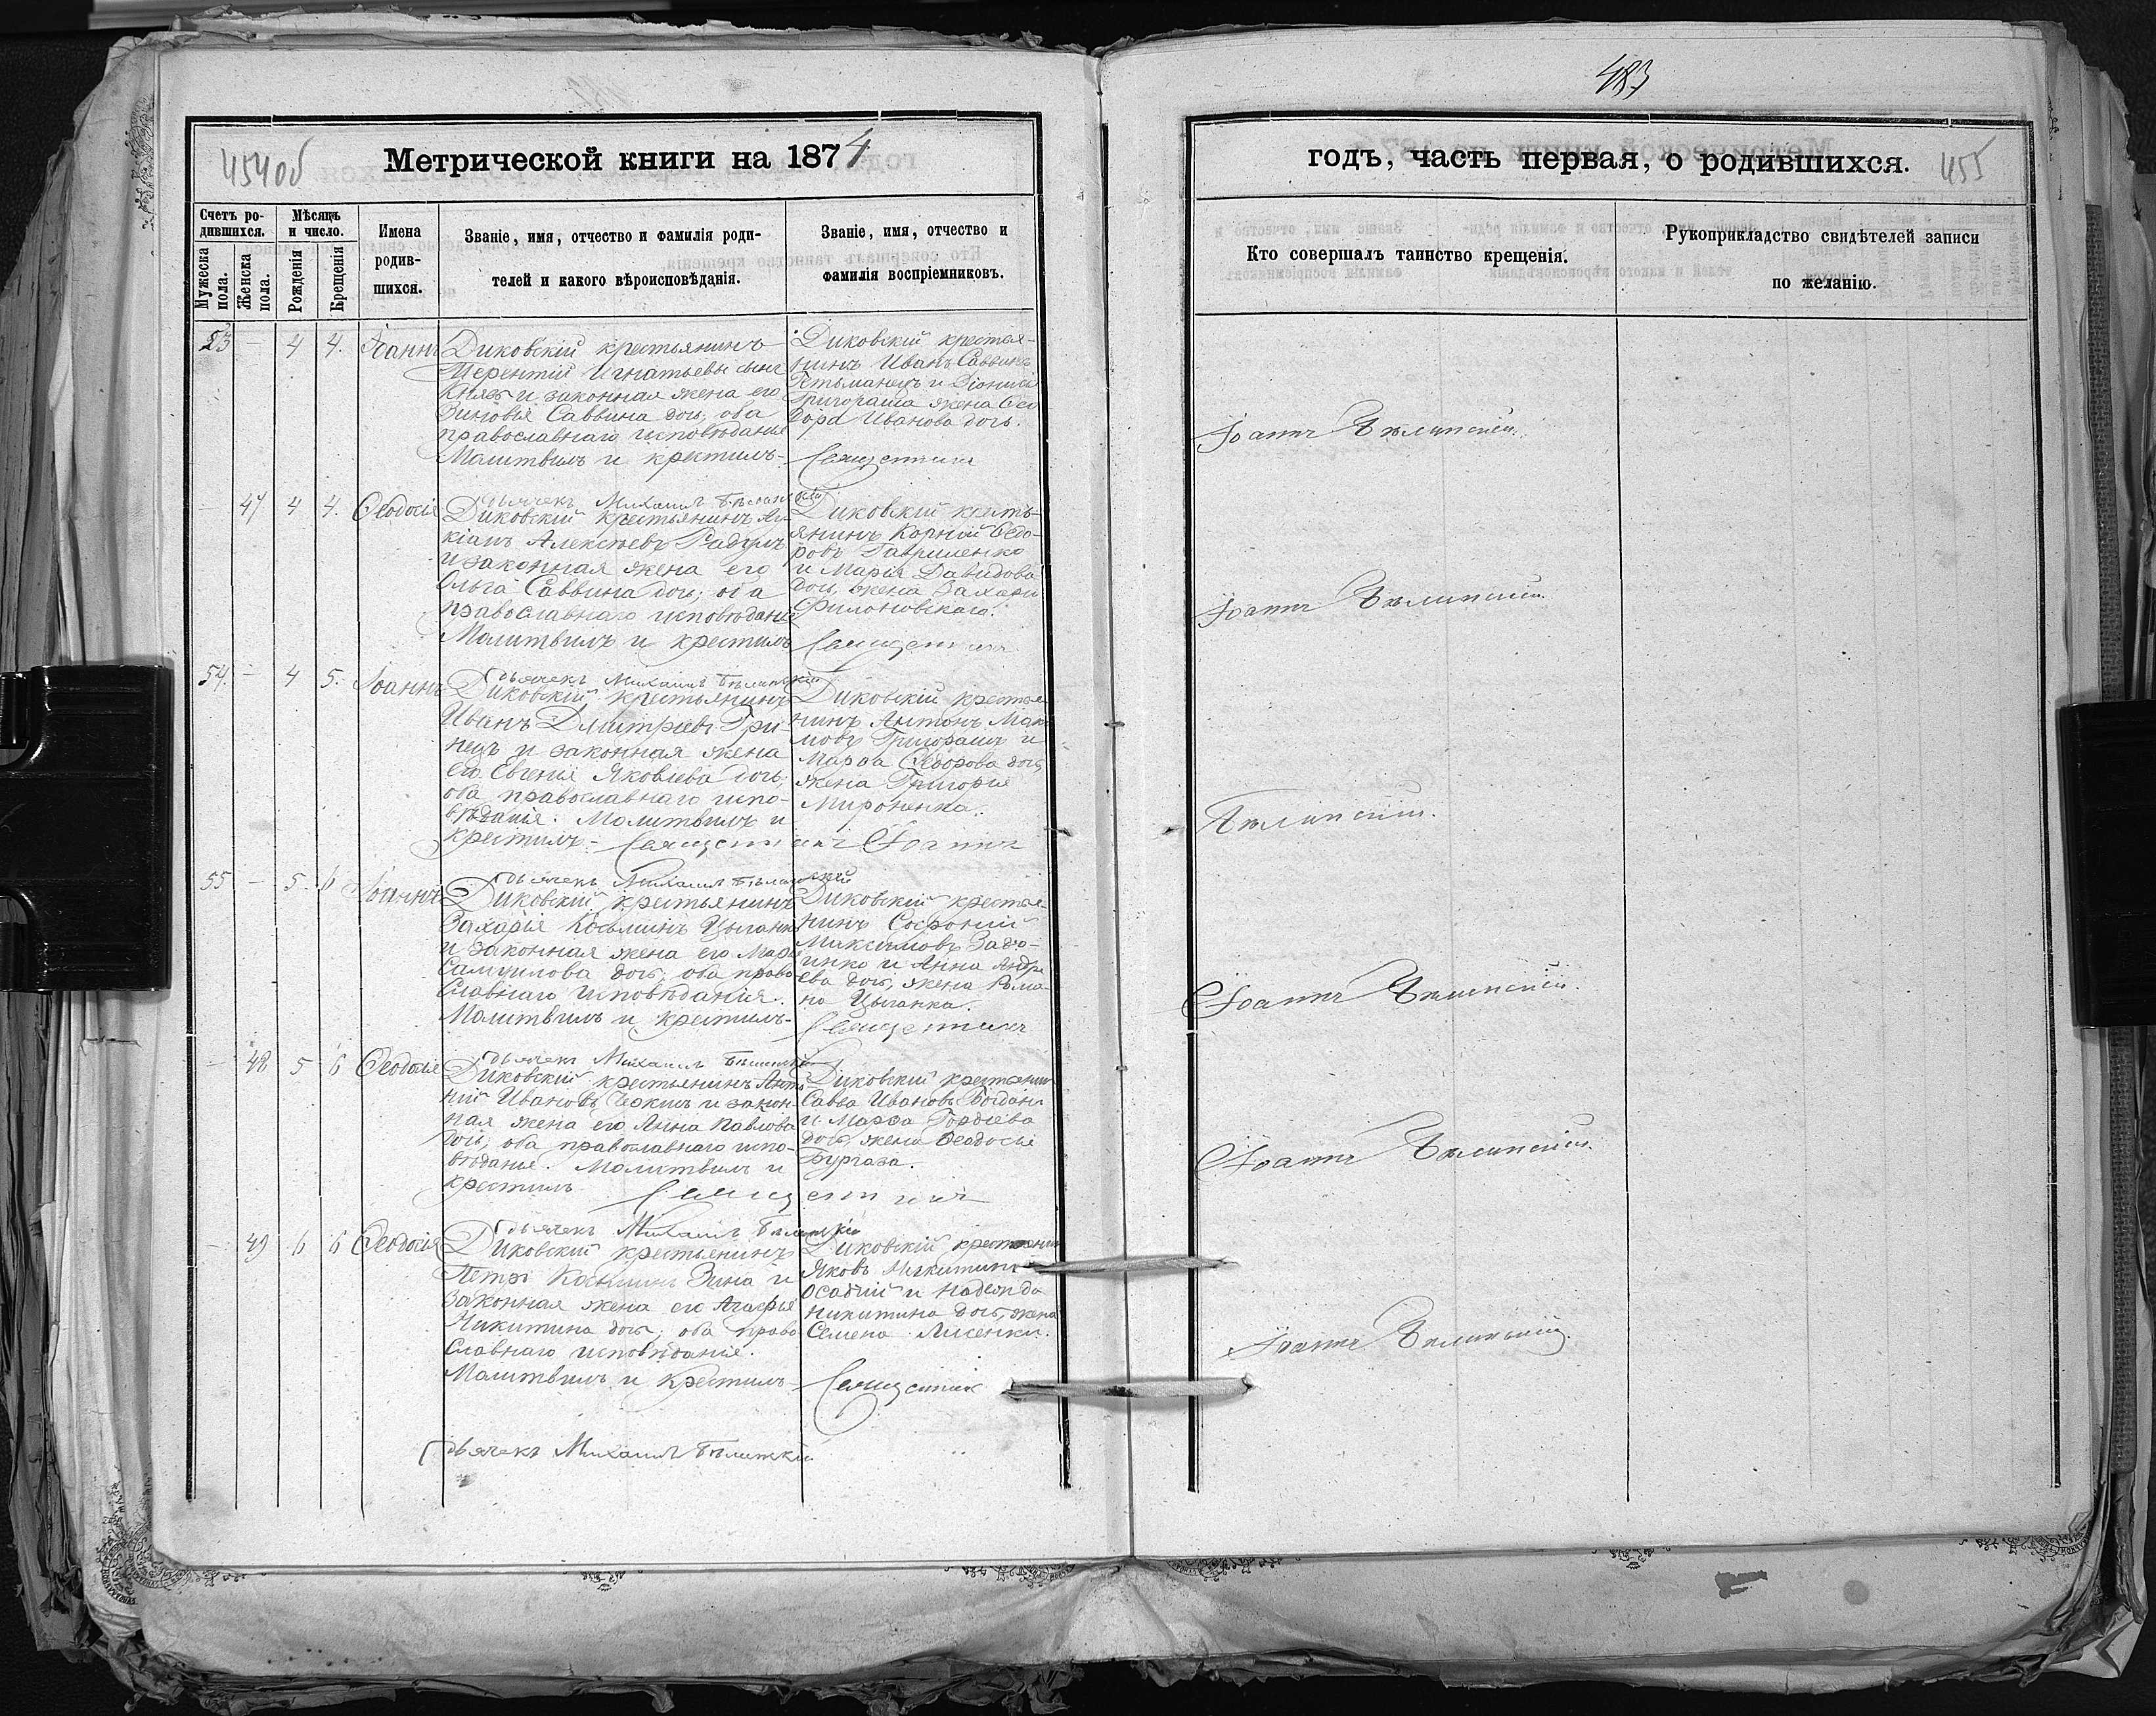 483
454об
Метрической книги на 1874
годъ, часть первая, о родившихся.
455
Счетъ ро-
дившихся.
Мѣсяцъ
и число.
Мужеска
пола.
Женска
пола.
Рожденія
Крещенія
Имена
родив-
шихся.
Званіе, имя, отчество и фамилія роди-
телей и какого вѣроисповѣданія.
Званіе, имя, отчество и
фамилія воспріемниковъ.
Кто совершалъ таинство крещенія.
Рукоприкладство свидѣтелей записи
по желанію.
53 - 4 4. Іоаннъ
Диковскій крестьянинъ
Терентій Игнатьевъ сынъ
Князь и законная жена его
Зиновія Саввина дочь, оба
православнаго исповѣданія
Молитвилъ и крестилъ-
Диковскій крестья-
нинъ Иванъ Саввинъ
Гетьманецъ и Діонисія
Григораша жена Ѳео
дора Иванова дочь.
Священникъ
Іоаннъ Бѣлинскій.
Дьячекъ Михаилъ Бѣлинскій
- 47 4 4. Ѳеодосія
Диковскій крестьянинъ
кіанъ Алексѣевъ
и законная жена его
Ольга Саввина дочь, оба
православнаго исповѣданія
Молитвилъ и крестилъ
Диковскій кресть-
янинъ Корній Ѳедо-
ровъ Гавриленко
и Марія Давидова
дочь, жена Захарія
Филоновскаго.
Священникъ
Іоаннъ Бѣлинскій.
Дьячекъ Михаилъ Бѣлинскій
54. - 4 5. Іоаннъ
Диковскій крестьянинъ
Иванъ Дмитріевъ Гри-
нецъ и законная жена
его Евгенія Яковлева дочь,
оба православнаго испо-
вѣданія. Молитвилъ и
крестилъ - Священникъ Іоаннъ
Диковскій крестья
нинъ Антонъ
мовъ Григорашъ и
Марѳа Ѳеодорова дочь,
жена Григорія
Мироненка.
Бѣлинскій.
Дьячекъ Михаилъ Бѣлинскій
55 - 5 6 Іоаннъ
Диковскій крестьянинъ
Захарія Косьминъ Цыганко
и законная жена его
Самуилова дочь, оба право
славнаго исповѣданія.
Молитвилъ и крестилъ-
Диковскій крестья-
нинъ Софроній
Максимовъ
и Анна Андре
ева дочь, жена Рома-
на Цыганка.
Священникъ
Іоаннъ Бѣлинскій.
Дьячекъ Михаилъ Бѣлинскій
- 48 5 6 Ѳеодосія
Диковскій крестьянинъ Анто
ній Ивановъ и закон-
ная жена его Анна Павлова
дочь, оба православнаго испо-
вѣданія. Молитвилъ и
крестилъ Священникъ
Диковскій крестьянинъ
Савва Ивановъ Богданъ
и Марѳа Гордіева
дочь, жена Ѳеодосія
Бургаза.
Іоаннъ Бѣлинскій.
Дьячекъ Михаилъ Бѣлинскій
- 49 6 6 Ѳеодосія
Диковскій крестьянинъ
Петръ Косьминъ Зина и
законная жена его Агафія
Никитина дочь, оба право
славнаго исповѣданія.
Молитвилъ и крестилъ-
Диковскій крестьянинъ
Яковъ Никитинъ
Осадчій и Надежда
Никитина дочь, жена
Семена Лисенки.
Священникъ
Іоаннъ Бѣлинскій.
Дьячекъ Михаилъ Бѣлинскій